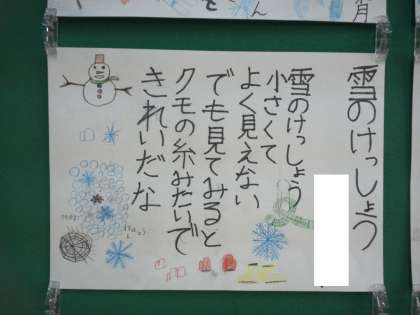 雪のけっしょう
雪のけっしょう
小さくて
よく見えない
でも見てみると
クモの糸みたいで
きれいだな